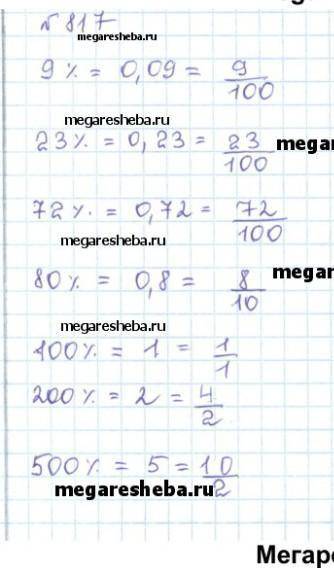 № 817
megaresheba.ru
9 % = 0,09 = 9/100
megaresheba.ru
23 % = 0,23 = 23/100 megare
72 % = 0,72 = 72/100
megaresheba.ru
80 % = 0,8 = 8/10 megare
megaresheba.ru
100 % = 1 = 1/1
200 % = 2 = 4/2
500 % = 5 = 10/2
megaresheba.ru
Мегаре